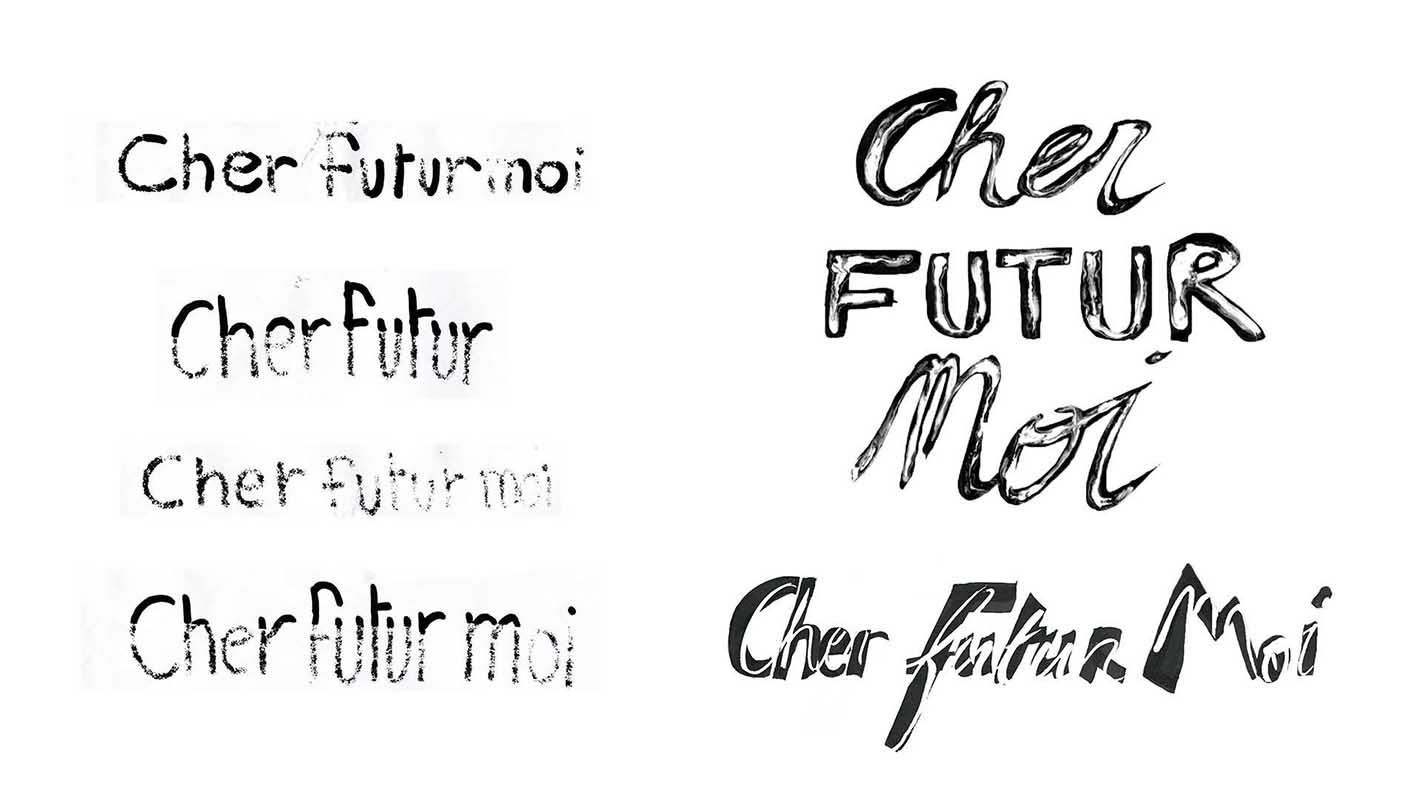 Cher futur moi
Cher futur
Cher futur moi
Cher futur moi
Cher
FUTUR
Moi
Cher futur Moi